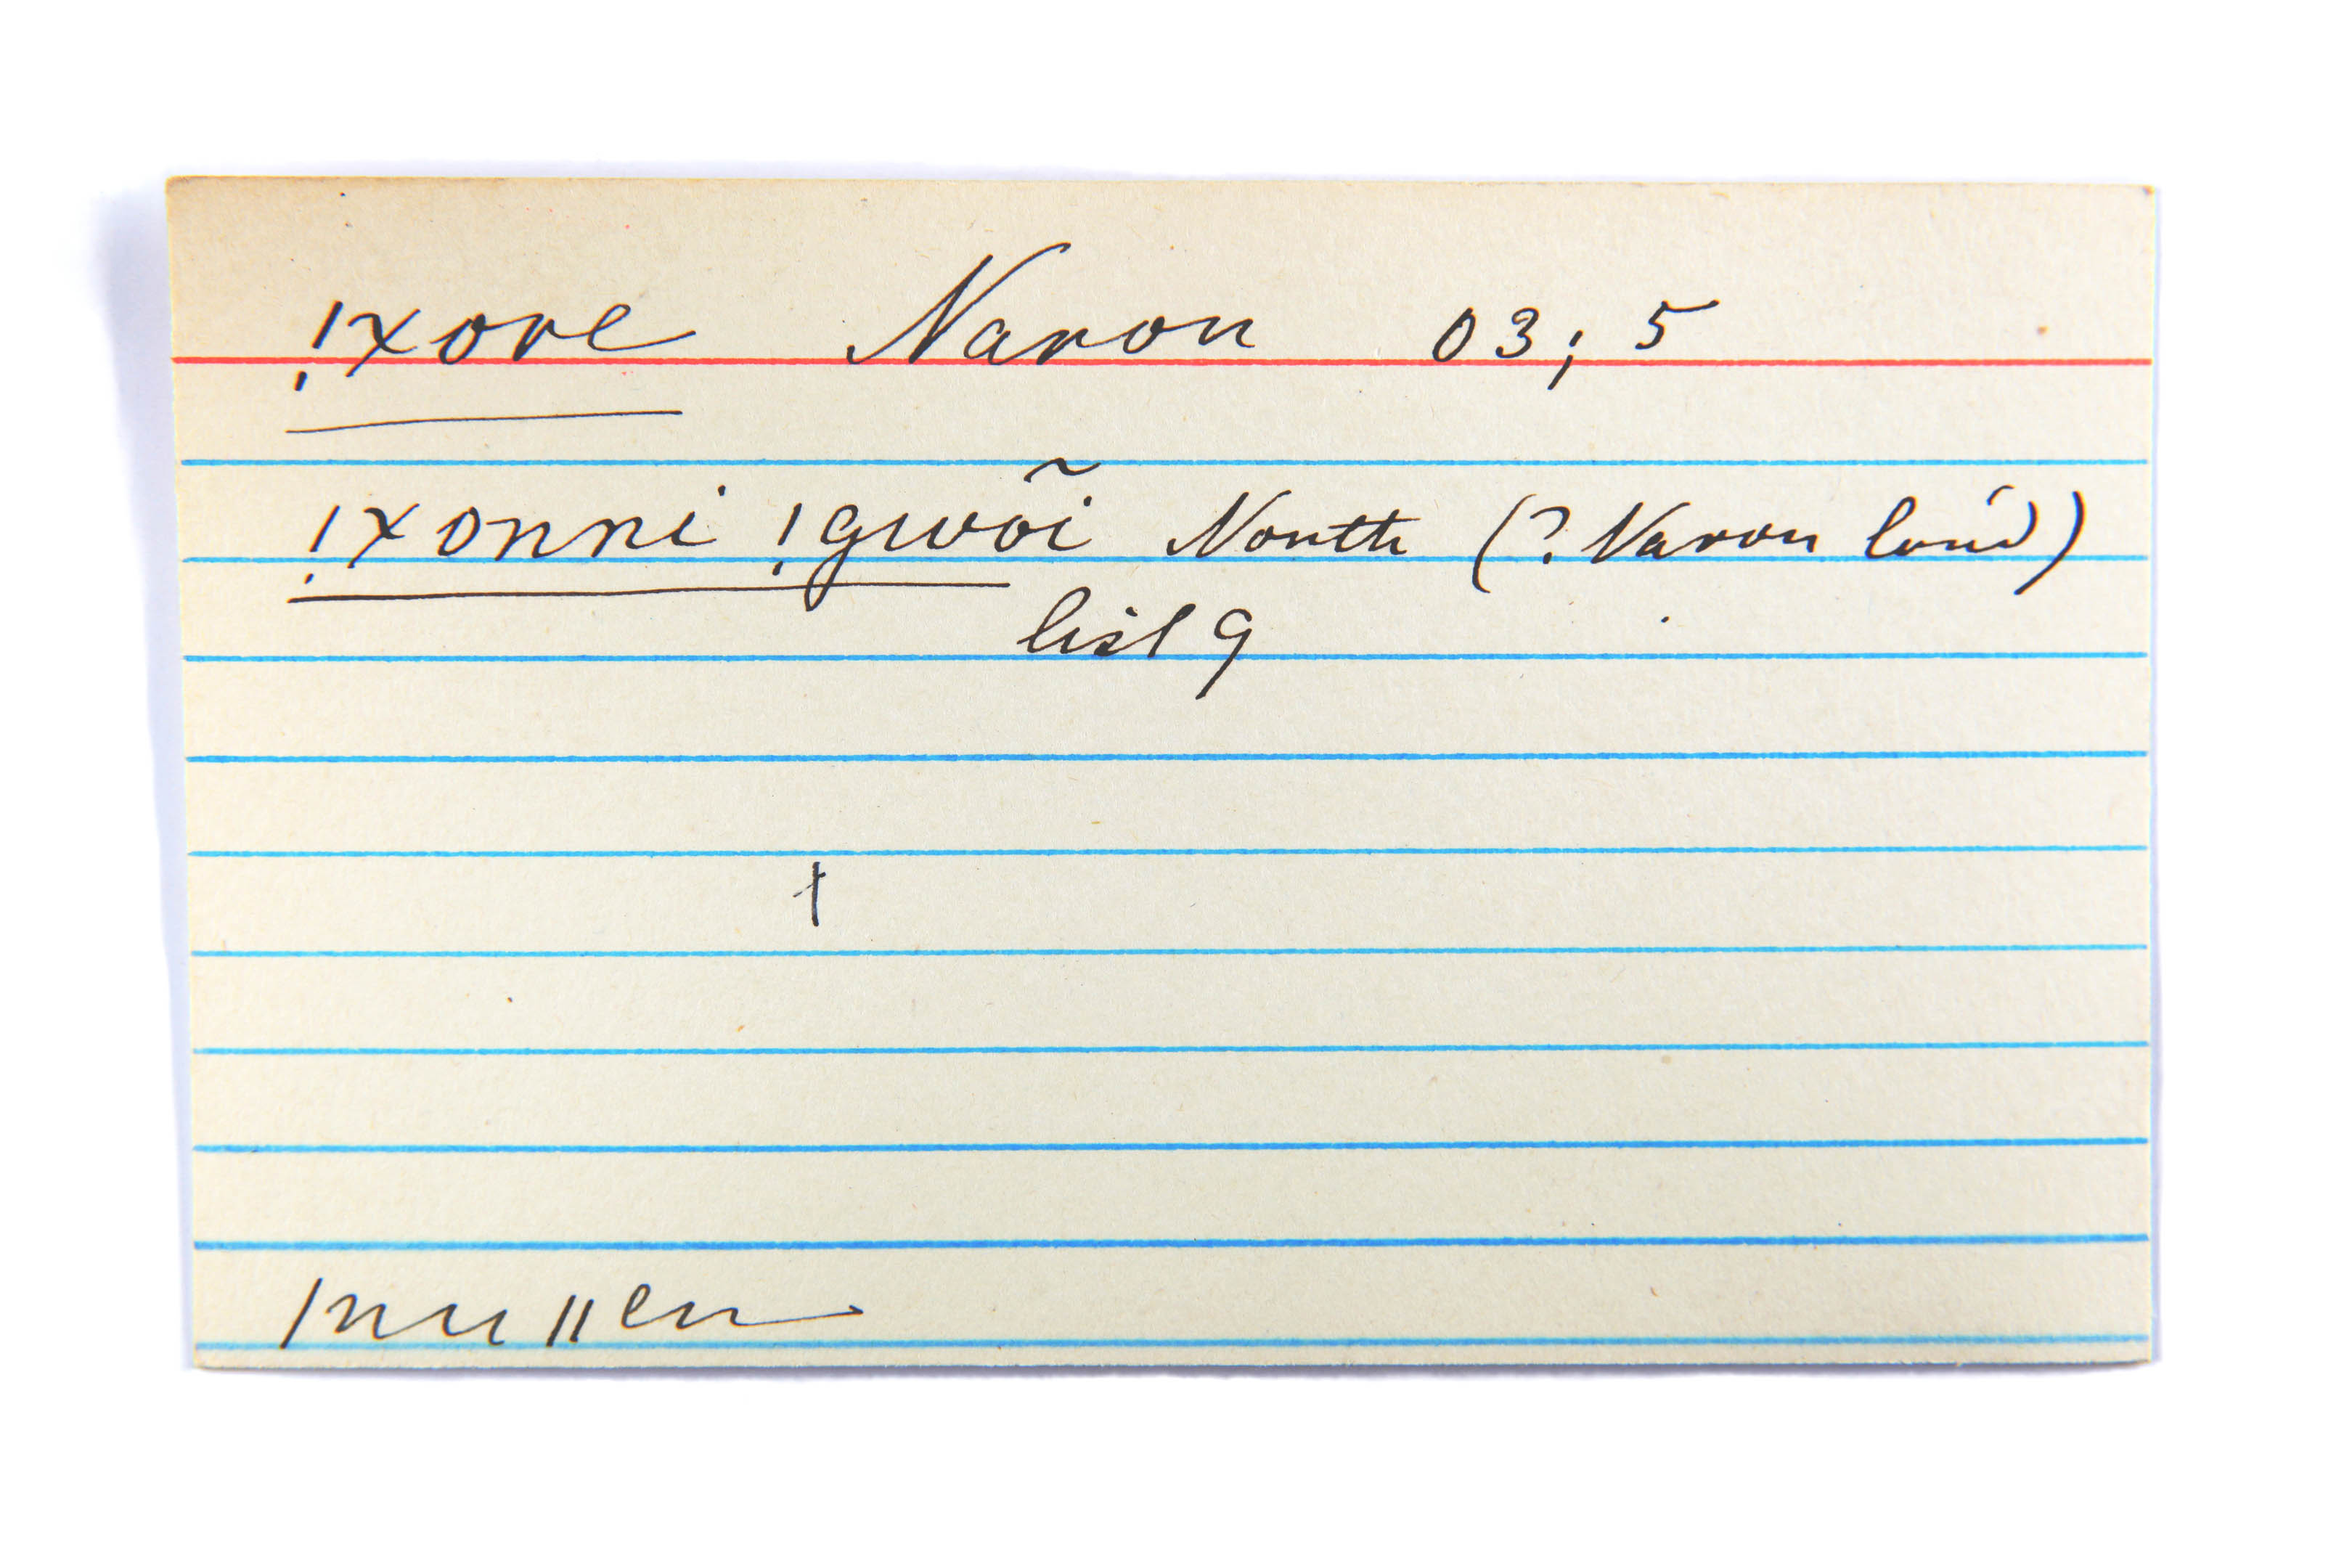 !xore Naron 03; 5
!xonni !gwõi North (? Naron land)
list 9
ǀnu ǁen